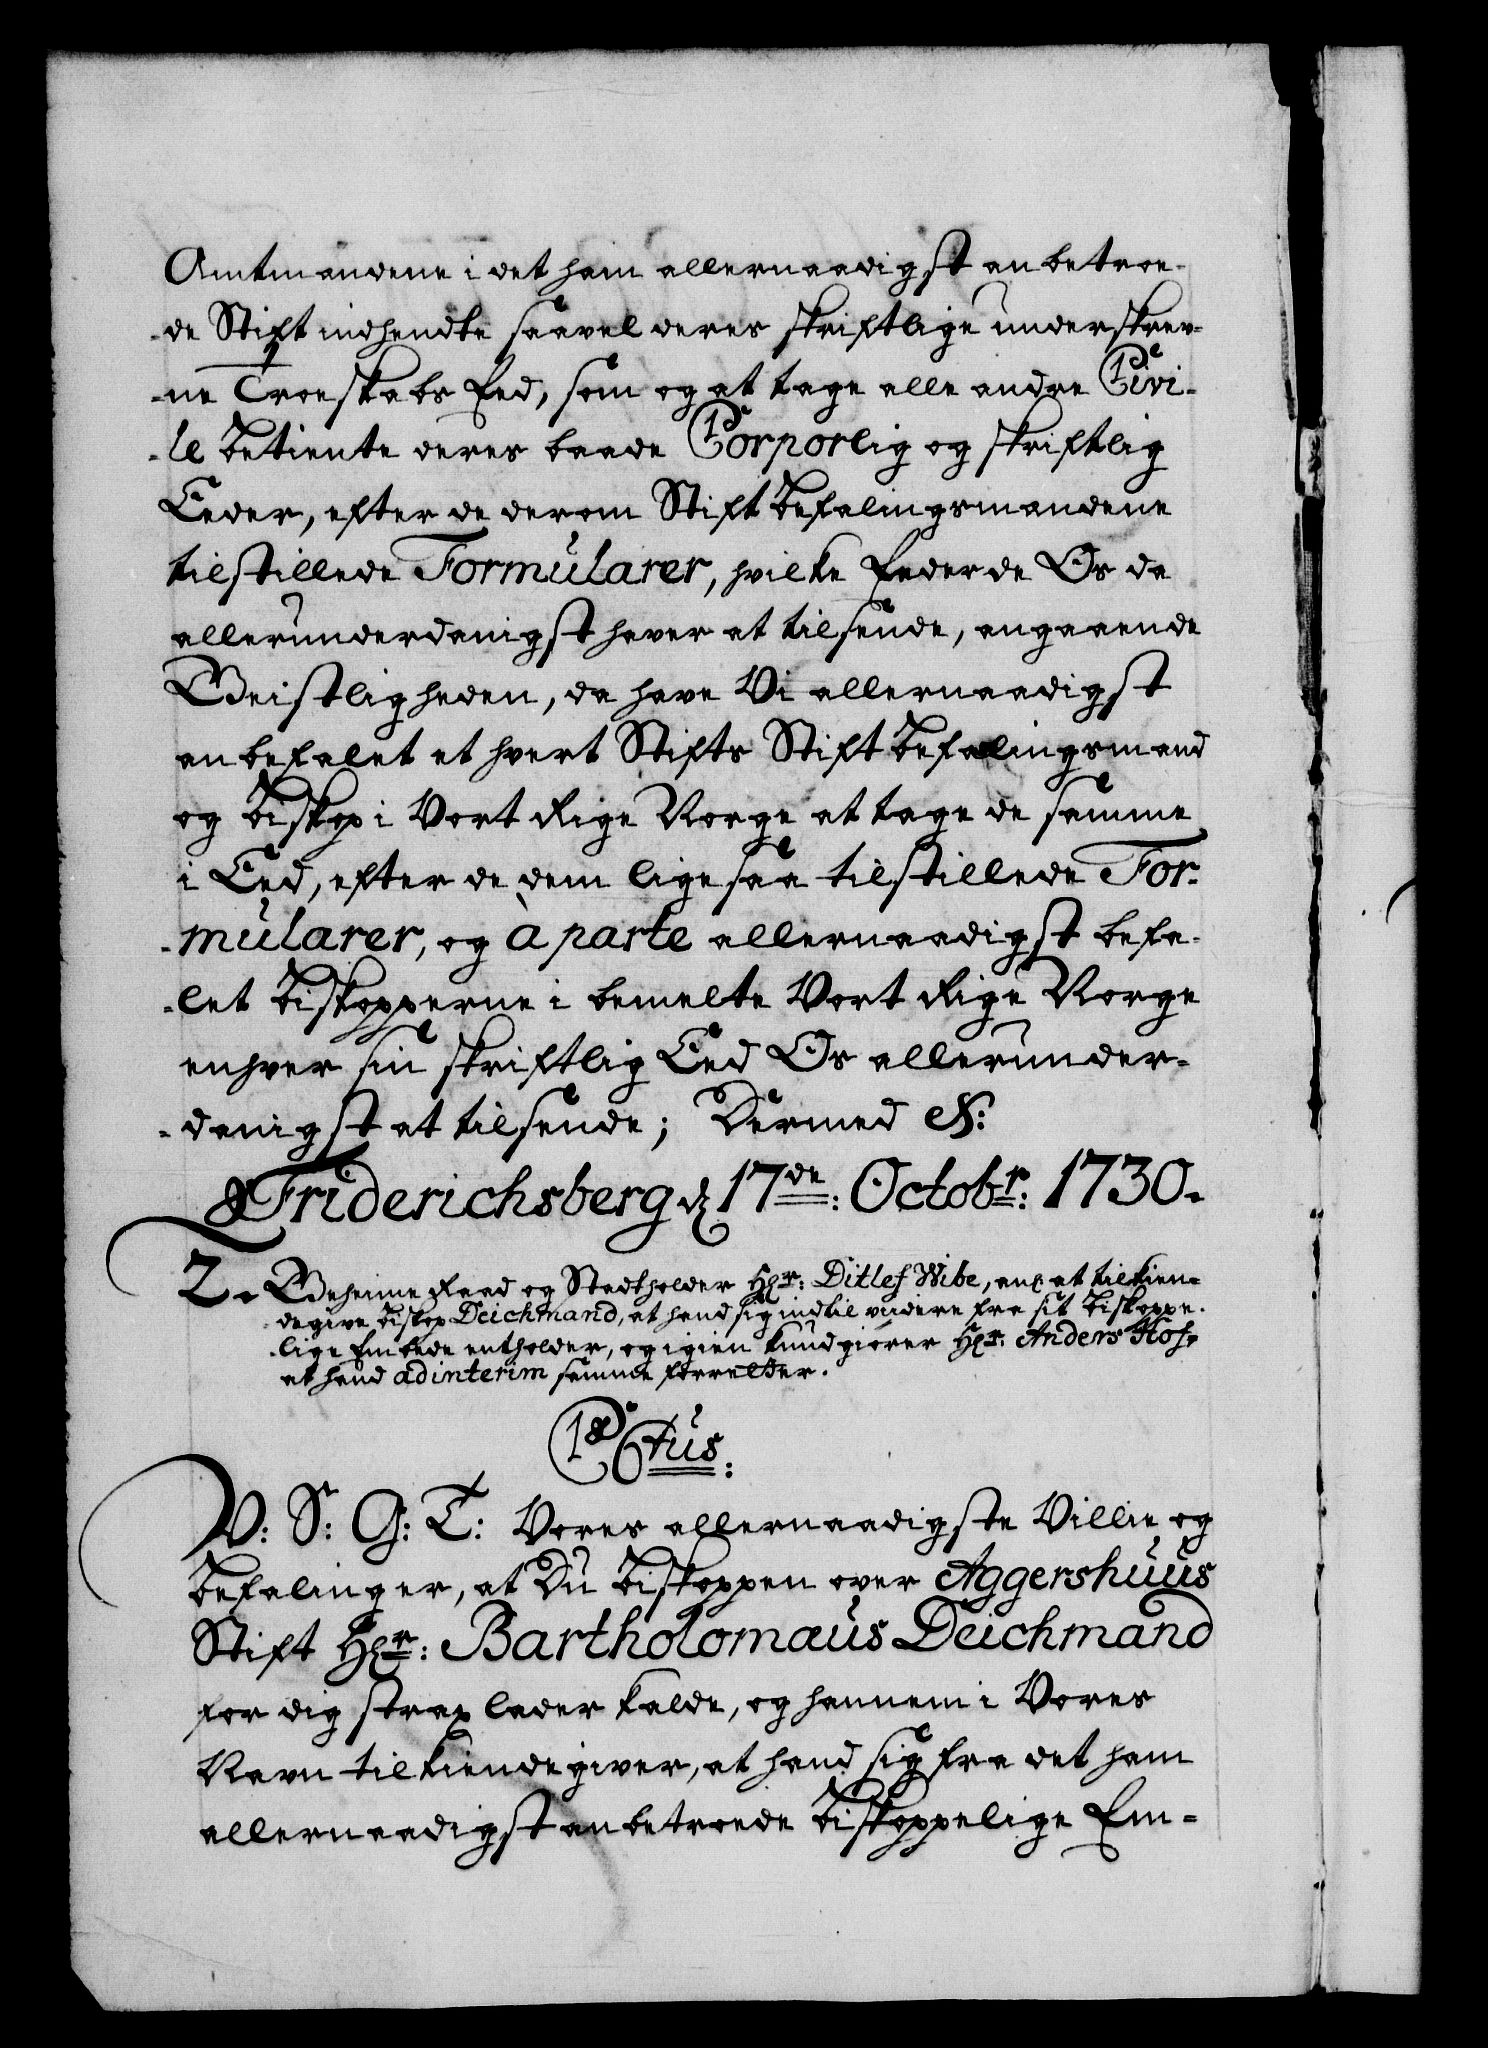 Amtmændene i det ham allernaadigst anbetroe-
-de Stift indhendte saavel deres skriftlige underskrev-
-ne Troeskabs Eed, som og at tage alle andre Civi-
-le Betiente deres baade Corporlig og skriftlig
Eeder, efter de derom Stift Befalingsmændene
tilstillede Formularer, hvilke Eeder de Os da
allerunderdanigst haver at tilsende, angaaende
Geistligheden, da have Vi allernaadigst
anbefalet et hvert Stifts Stift Befalingsmand
og Biskop i Vort Rige Norge at tage de samme
i Eed, efter de dem ligesaa tilstillede For-
-mularer, og à parte allernaadigst befa-
-let Biskopperne i bemelte Vort Rige Norge
enhver sin skriftlig Eed Os allerunder-
-danigst at tilsende; Dermed &:
Friderichsberg d 17de: Octobr: 1730.
2. Geheime Raad og Stadtholder Hr: Ditlef Wibe, anl: at tilkien-
degive Biskop Deichmand, at hand sig indtil viidere fra sit Biskoppe-
-lige Embede entholder, og igien kundgiører Hr: Anders Hof,
at hand ad interim samme forretter.
C 6tus:
V: S: G: T: Vores allernaadigste Villie og
Befalinger, at Du Biskoppen over Aggershuus
Stift Hr: Bartholomæus Deichmand
for dig strax lader kalde, og hannem i Vores
Navn tilkiendegiver, at hand sig fra det ham
allernaadigst anbetroede Biskoppelige Em-